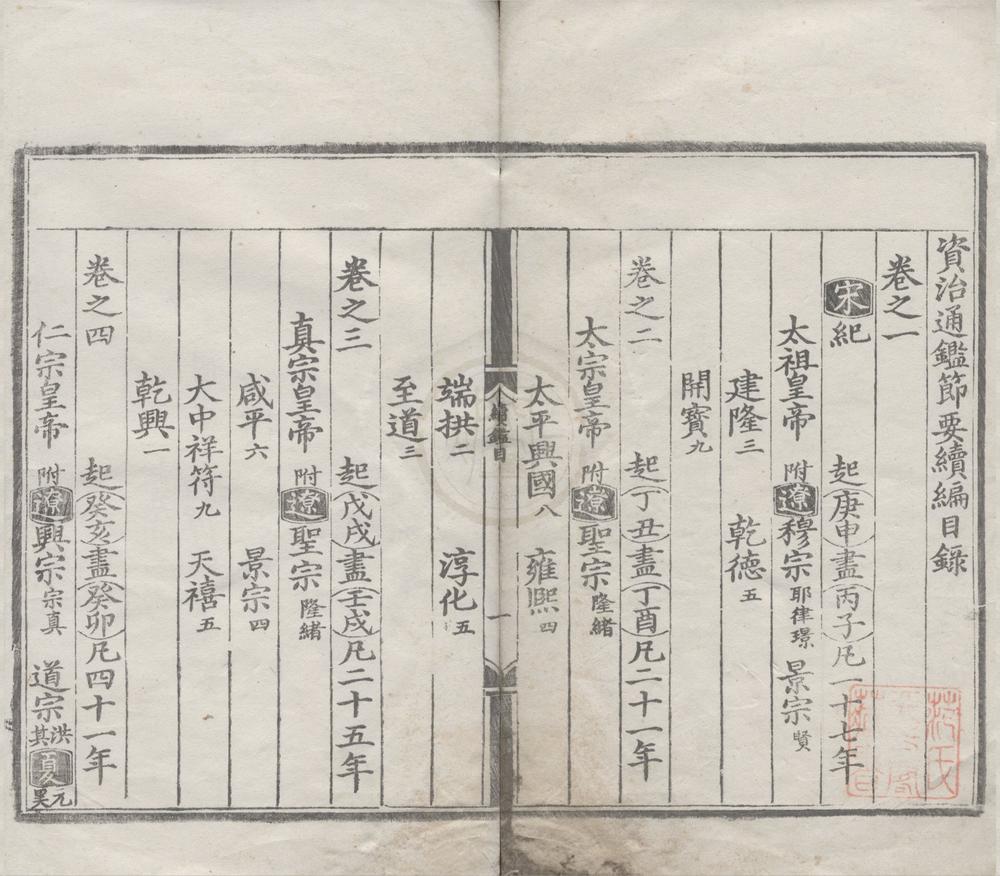 資治通鑑節要續編目錄
卷之一
宋紀 起庚申盡丙子凡一十七年
太祖皇帝 附遼穆宗耶律璟 景宗賢
建隆三 乾德五
開寶九
卷之二 起丁丑盡丁酉凡二十一年
太宗皇帝 附遼聖宗隆緒
太平興國八 雍熙四
續鑑目 一
端拱二 淳化五
至道三
卷之三 起戊戌盡壬戌凡二十五年
真宗皇帝 附遼聖宗隆緒
咸平六 景宗四
大中祥符九 天禧五
乾興一
卷之四 起癸亥盡癸卯凡四十一年
仁宗皇帝 附遼興宗宗真 道宗洪其夏元昊